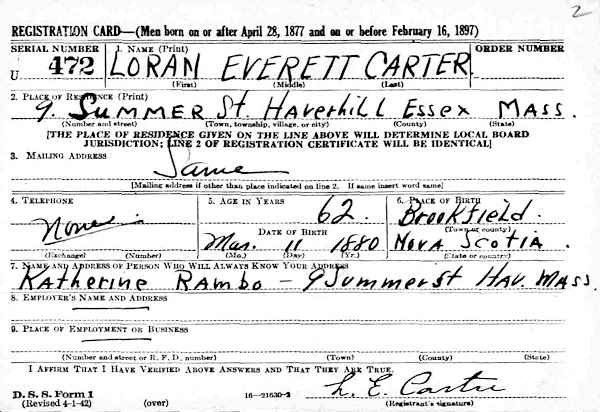 2
REGISTRATION CARD—(Men born on or after April 28, 1877 and on or before February 16, 1897)
SERIAL NUMBER 1. NAME (Print) ORDER NUMBER
U 472 LORAN EVERETT CARTER
(First) (Middle) (Last)
2. PLACE OF RESIDENCE (Print)
9. SUMMER St. Haverhill Essex MASS.
(Number and street) (Town, township, village, or city) (County) (State)
[THE PLACE OF RESIDENCE GIVEN ON THE LINE ABOVE WILL DETERMINE LOCAL BOARD
JURISDICTION; LINE 2 OF REGISTRATION CERTIFICATE WILL BE IDENTICAL]
3. MAILING ADDRESS
Same
[Mailing address if other than place indicated on line 2. If same insert word same]
4. TELEPHONE 5. AGE IN YEARS 6. PLACE OF BIRTH
None 62. Brookfield.
DATE OF BIRTH (Town or county)
Mar. 11 1880 Nova Scotia.
(Exchange) (Number) (Mo.) (Day) (Yr.) (State or country)
7. NAME AND ADDRESS OF PERSON WHO WILL ALWAYS KNOW YOUR ADDRESS
Katherine Rambo – 9 Summer St Hav. MASS.
8. EMPLOYER'S NAME AND ADDRESS
9. PLACE OF EMPLOYMENT OR BUSINESS
(Number and street or R. F. D. number) (Town) (County) (State)
I AFFIRM THAT I HAVE VERIFIED ABOVE ANSWERS AND THAT THEY ARE TRUE.
L. E. Carter
D. S. S. Form 1 16—21630-2 (Registrant's signature)
(Revised 4-1-42) (over)